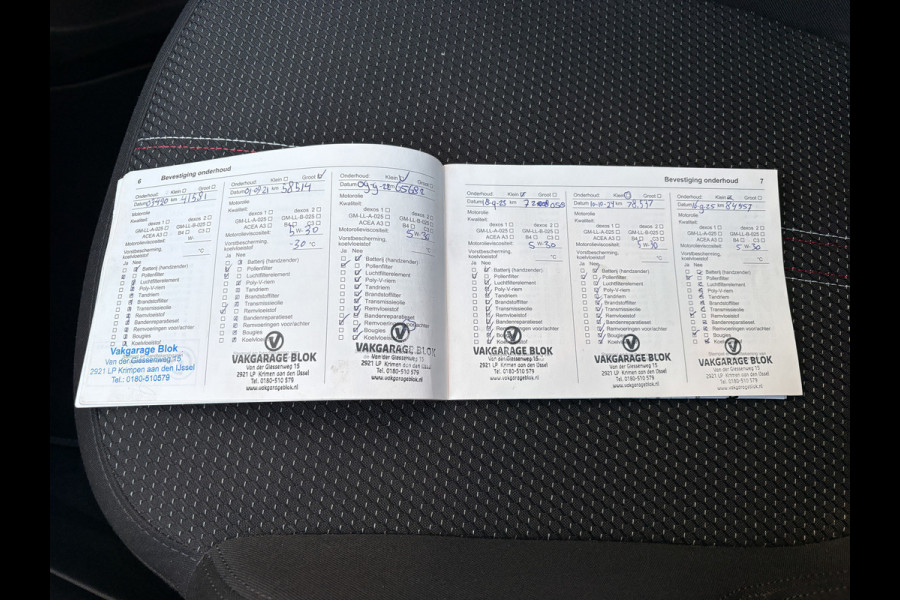 6 Bevestiging onderhoud
Onderhoud: Klein Groot
Datum km 41581
Motorolie
Kwaliteit:
dexos 1 dexos 2
GM-LL-A-025 GM-LL-B-025
ACEA A3 B4 C3
Motorolieviscositeit: W-
Vorstbescherming, °C
koelvloeistof
Ja Nee
Batterij (handzender)
Pollenfilter
Luchtfilterelement
Poly-V-riem
Tandriem
Brandstoffilter
Transmissieolie
Remvloeistof
Bandenreparatieset
Remvoeringen voor/achter
Bougies
Koelvloeistof
Vakgarage Blok
Van der Giessenweg 15
2921 LP Krimpen aan den IJssel
Tel.: 0180-510579
Onderhoud: Klein Groot
Datum km 58514
Motorolie
Kwaliteit:
dexos 1 dexos 2
GM-LL-A-025 GM-LL-B-025
ACEA A3 B4 C3
Motorolieviscositeit: 5 W-30
Vorstbescherming, -30 °C
koelvloeistof
Ja Nee
Batterij (handzender)
Pollenfilter
Luchtfilterelement
Poly-V-riem
Tandriem
Brandstoffilter
Transmissieolie
Remvloeistof
Bandenreparatieset
Remvoeringen voor/achter
Bougies
VAKGARAGE BLOK
Van der Giessenweg 15
2921 LP Krimpen a/d IJssel
Tel. 0180-510 579
www.vakgarageblok.nl
Onderhoud: Klein Groot
Datum km 65688
Motorolie
Kwaliteit:
dexos 1 dexos 2
GM-LL-A-025 GM-LL-B-025
ACEA A3 B4 C3
Motorolieviscositeit: 5 W-30
Vorstbescherming, °C
koelvloeistof
Ja Nee
Batterij (handzender)
Pollenfilter
Luchtfilterelement
Poly-V-riem
Tandriem
Brandstoffilter
Transmissieolie
Remvloeistof
Bandenreparatieset
Remvoeringen voor/achter
Bougies
Koelvloeistof
VAKGARAGE BLOK
Van der Giessenweg 15
2921 LP Krimpen aan den IJssel
Tel. 0180-510 579
www.vakgarageblok.nl
Bevestiging onderhoud 7
Onderhoud: Klein Groot
Datum km
Motorolie
Kwaliteit:
dexos 1 dexos 2
GM-LL-A-025 GM-LL-B-025
ACEA A3 B4 C3
Motorolieviscositeit: 5 W-30
Vorstbescherming, °C
koelvloeistof
Ja Nee
Batterij (handzender)
Pollenfilter
Luchtfilterelement
Poly-V-riem
Tandriem
Brandstoffilter
Transmissieolie
Remvloeistof
Bandenreparatieset
Remvoeringen voor/achter
Bougies
VAKGARAGE BLOK
Van der Giessenweg 15
2921 LP Krimpen aan den IJssel
Tel. 0180-510 579
www.vakgarageblok.nl
Onderhoud: Klein Groot
Datum km 78.537
Motorolie
Kwaliteit:
dexos 1 dexos 2
GM-LL-A-025 GM-LL-B-025
ACEA A3 B4 C3
Motorolieviscositeit: 5 W-30
Vorstbescherming, °C
koelvloeistof
Ja Nee
Batterij (handzender)
Pollenfilter
Luchtfilterelement
Poly-V-riem
Tandriem
Brandstoffilter
Transmissieolie
Remvloeistof
Bandenreparatieset
Remvoeringen voor/achter
Bougies
VAKGARAGE BLOK
Van der Giessenweg 15
2921 LP Krimpen aan den IJssel
Tel. 0180-510 579
www.vakgarageblok.nl
Onderhoud: Klein Groot
Datum km 84957
Motorolie
Kwaliteit:
dexos 1 dexos 2
GM-LL-A-025 GM-LL-B-025
ACEA A3 B4 C3
Motorolieviscositeit: 5 W-30
Vorstbescherming, °C
koelvloeistof
Ja Nee
Batterij (handzender)
Pollenfilter
Luchtfilterelement
Poly-V-riem
Tandriem
Brandstoffilter
Transmissieolie
Remvloeistof
Bandenreparatieset
Remvoeringen voor/achter
Bougies
VAKGARAGE BLOK
Van der Giessenweg 15
2921 LP Krimpen aan den IJssel
Tel. 0180-510 579
www.vakgarageblok.nl